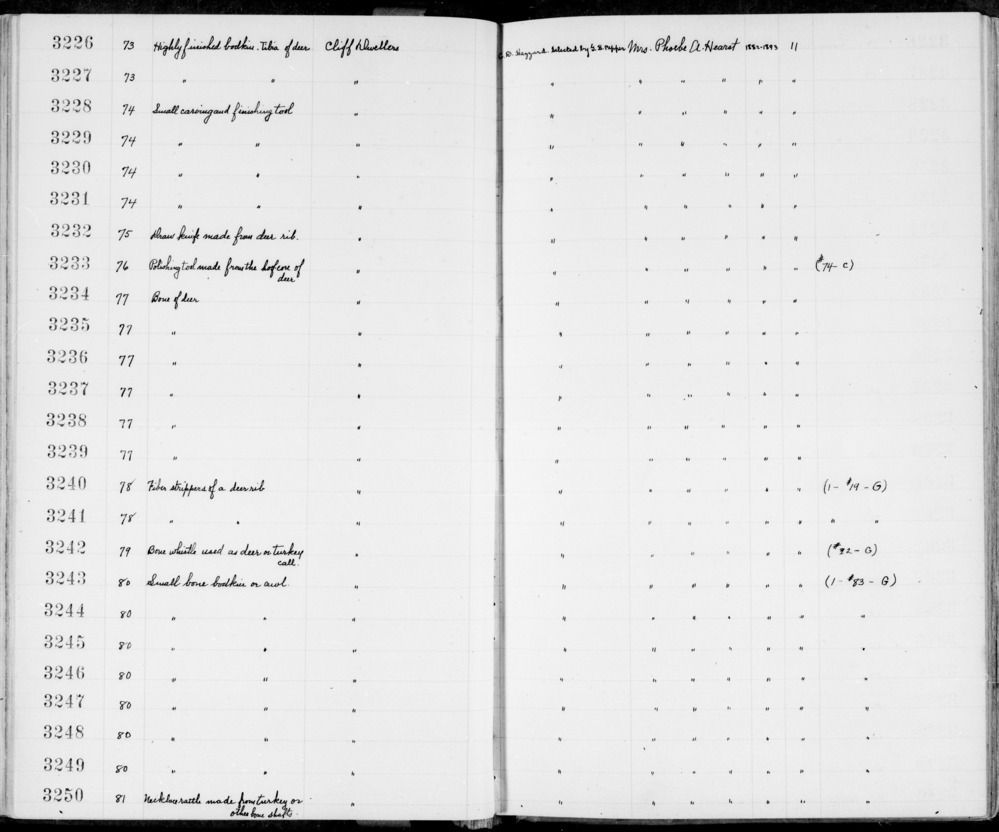 3226 73 Highly finished bodkin. Tibia of deer Cliff Dwellers C. D. Hazzard. Selected by G. H. Pepper Mrs. Phoebe A. Hearst 1882-1893 11
3227 73 " " " " " " " " "
3228 74 Small carving and finishing tool " " " " " " "
3229 74 " " " " " " " " "
3230 74 " " " " " " " " "
3231 74 " " " " " " " " "
3232 75 Draw knife made from deer rib. " " " " " " "
3233 76 Polishing tool made from the of " " " " " " " (#74-C)
deer
3234 77 Bone of deer " " " " " " "
3235 77 " " " " " " " "
3236 77 " " " " " " " "
3237 77 " " " " " " " "
3238 77 " " " " " " " "
3239 77 " " " " " " " "
3240 78 Fiber strippers of a deer rib " " " " " " " (1-#19-G)
3241 78 " " " " " " " " " " "
3242 79 Bone whistle used as deer or turkey " " " " " " " (#92-G)
call.
3243 80 Small bone bodkin or awl. " " " " " " " (1-#83-G)
3244 80 " " " " " " " " " "
3245 80 " " " " " " " " " "
3246 80 " " " " " " " " " "
3247 80 " " " " " " " " " "
3248 80 " " " " " " " " " "
3249 80 " " " " " " " " " "
3250 81 Necklace rattle made from turkey or " " " " " " " "
other bone shafts.